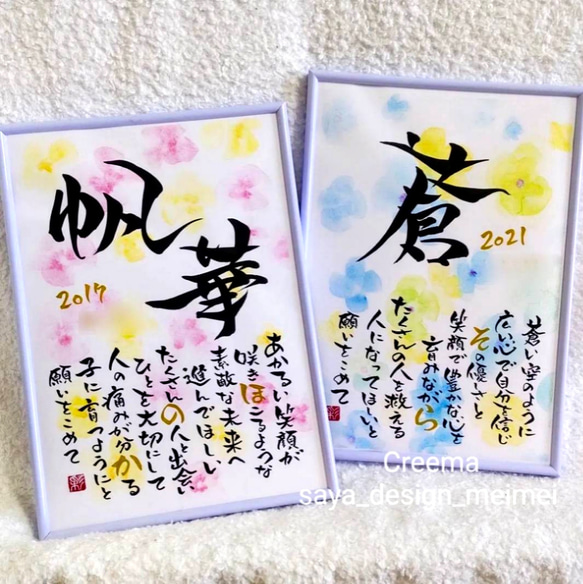 帆華
2017
あかるい笑顔が
咲きほこるような
素敵な未来へ
進んでほしい
たくさんの人と出会い
ひとを大切にして
人の痛みが分かる
子に育つようにと
願いをこめて
蒼
2021
蒼い空のように
広い心で自分を信じ
その優しさと
笑顔で豊かな心を
育みながら
たくさんの人を救える
人になってほしいと
願いをこめて
Creema
saya_design_meimei